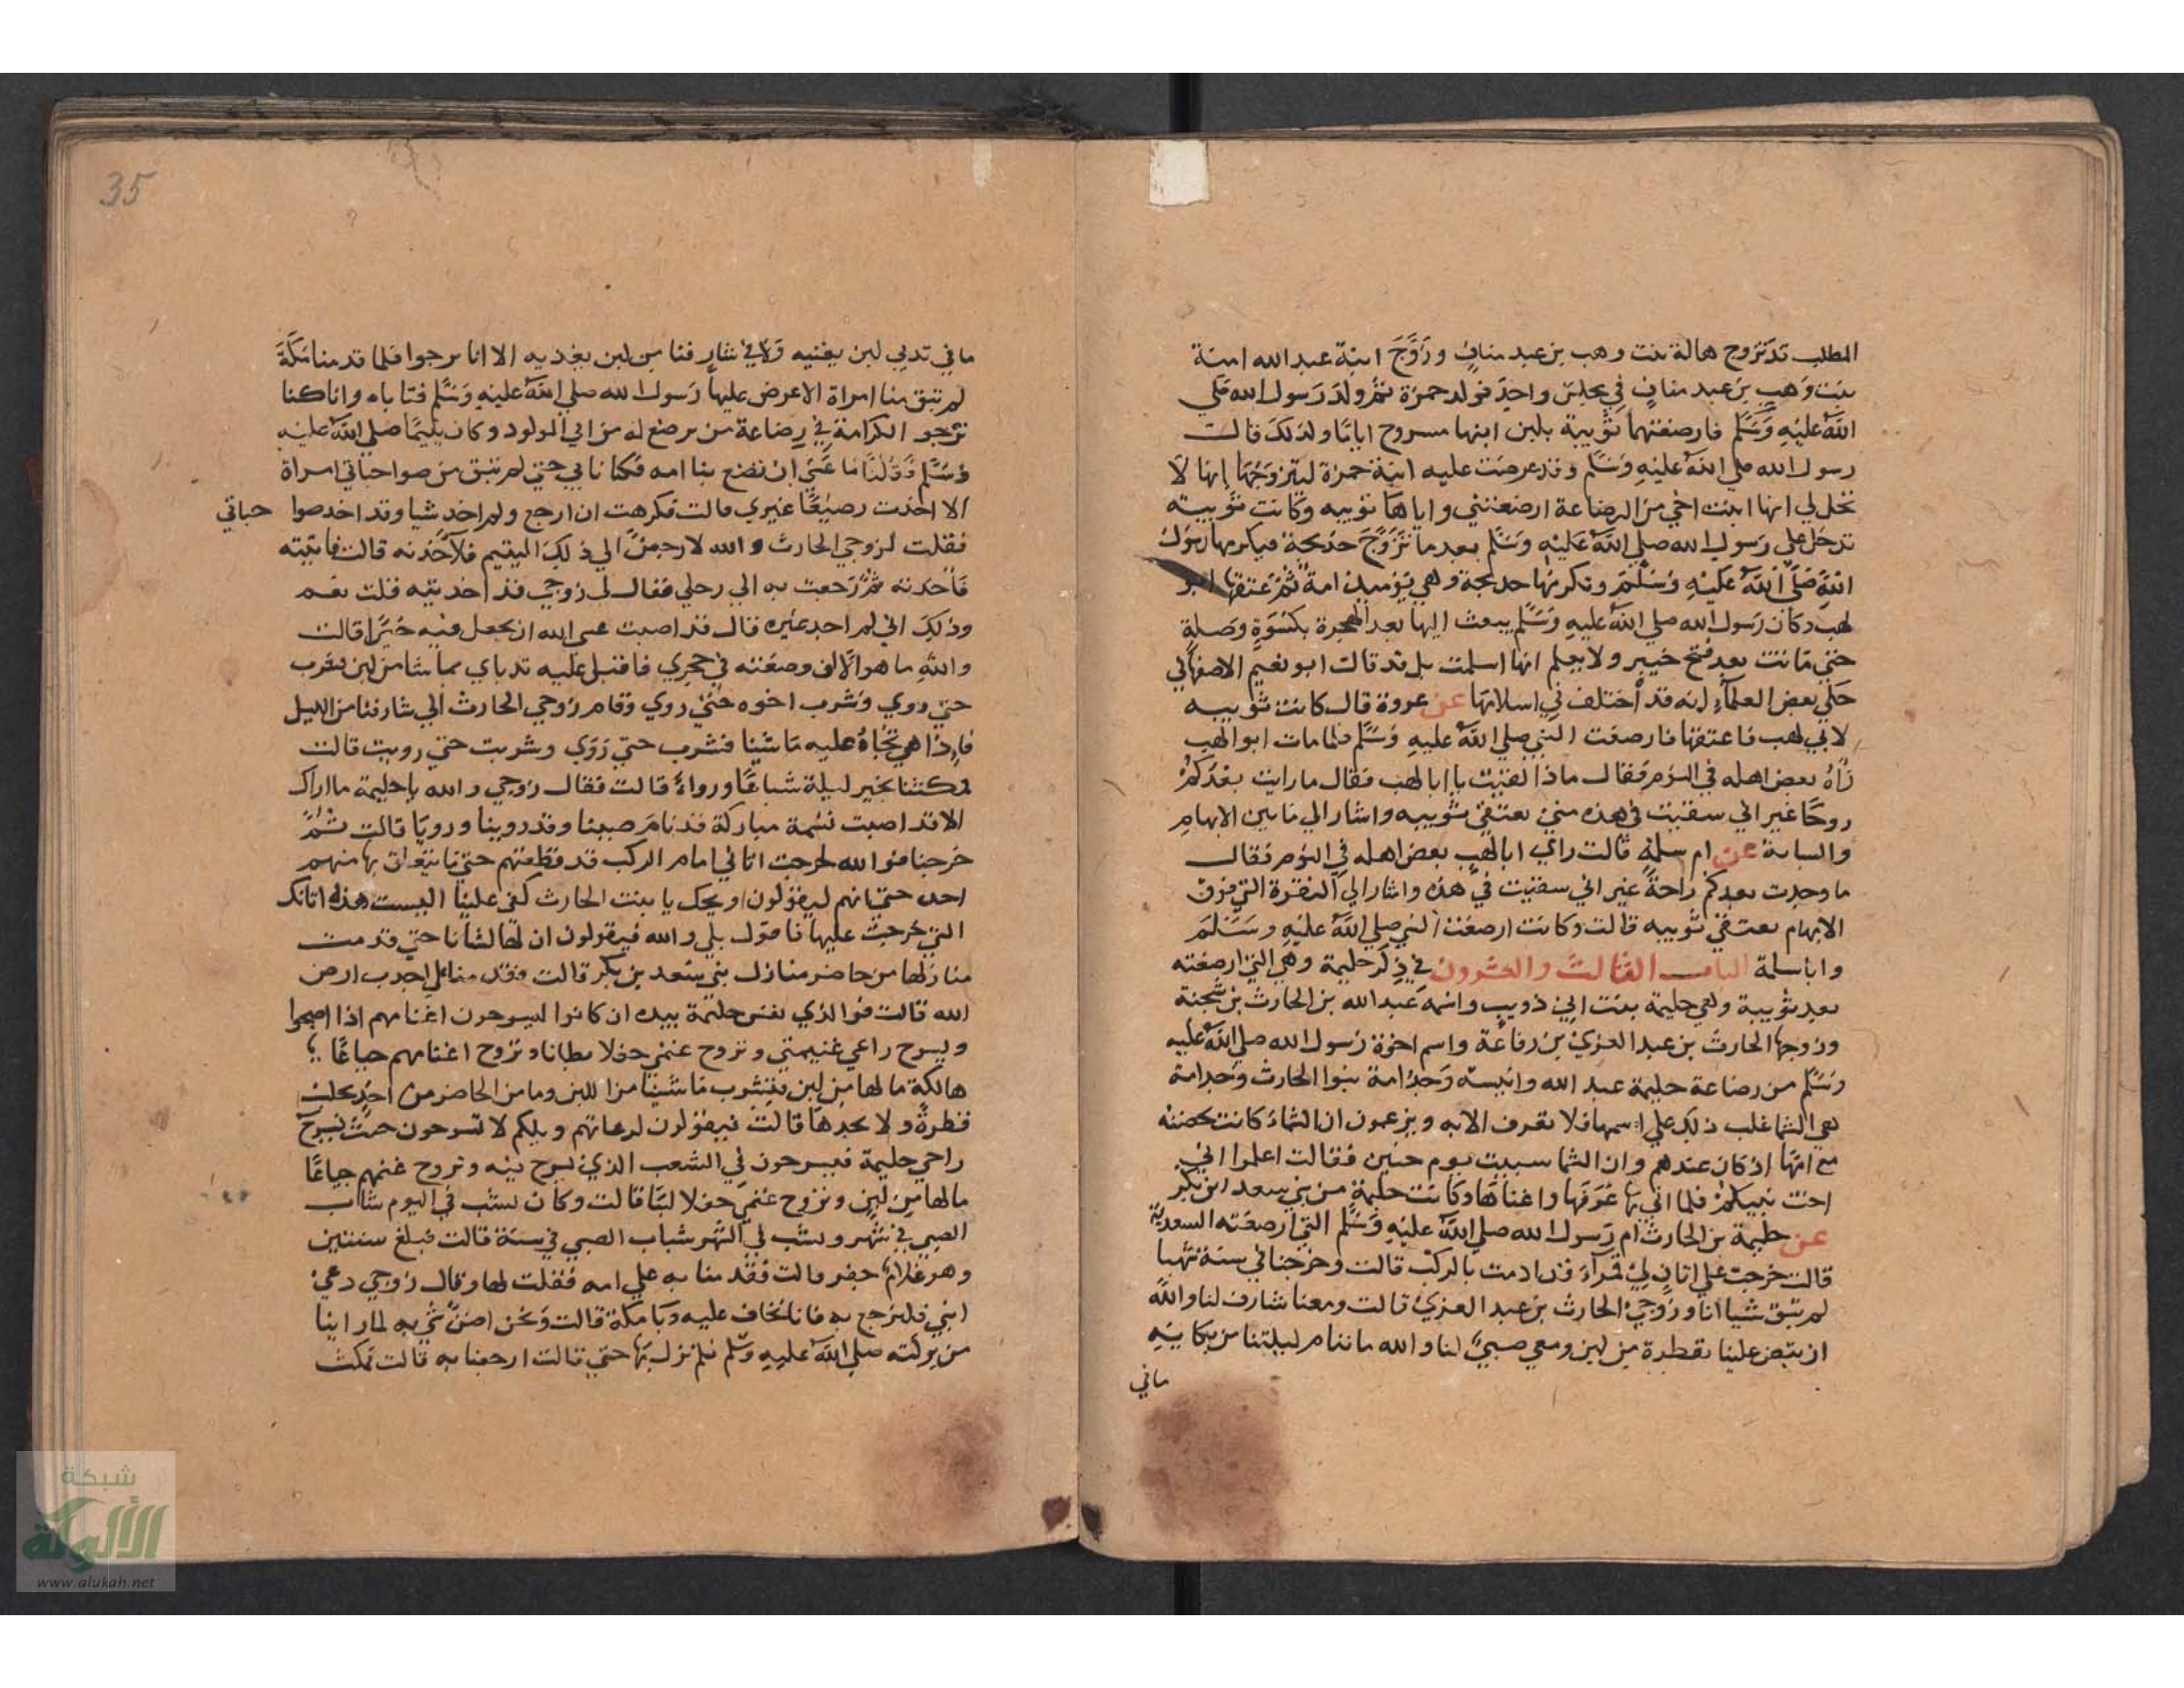 المطلب قد تزوج هالة بنت وهب بن عبد منافٍ وزَوَّجَ ابنة عبد الله امنة
بنت وَهبِ بن عبد منافٍ في مجلسٍ واحدٍ فولد حمزة ثم ولدَ رَسول الله صَلي
اللهُ عليْهِ وَسَلَّم فارضعتهما ثُوَيبة بلبن ابنها مسروح اياما ولذلكَ قالت
رسول الله صلي اللهُ عليْهِ وَسَلَّم وقد عرضت عليه ابنة حمزة ليتزوَجُهَا إنها لَا
تحل لي انها ابنت اخي من الرضاعة ارضعتني واياها ثويبه وكانت ثويبة
تدخل على رَسول الله صلي اللهُ عَليْهِ وَسَلَّم بعد ما تزَوَّجَ خديجة فيكرمها رسَول
اللهِ صَلَّى اللهُ عَليْهِ وَسَلَّمَ وتكرمُها خديجة وهي يَوميذٍ امة ثمَّ عتقها ابو
لهب وكان رَسول الله صلي اللهُ عليهِ وَسَلَّم يبعث اليها بعد الهجرة بكسْوَةٍ وصَلةٍ
حتي مَاتت بعد فتح خيبر ولا يعلم انها اسلمت بل قد قالت ابو نعيم الاصفهاني
حَكي بعض العلمآءِ انه قد اختلف في اسلامهَا عن عروة قال كانت ثويبه
لابي لهب فاعتقها فارضعت النبي صلي اللهُ عليهِ وَسَلَّم فلما مات ابو الهب
رَاهُ بعض اهله في النوم فقال ماذا لقيت يا ابا لهب فقال ما رايت بعْدكمْ
روحًا غير اني سقيت في هذه مني بعتقي ثويبه واشار الي مَا بين الابهام
والسابة عن ام سلمة قالت راي ابا لهبٍ بعض اهله في النوم فقال
ما وجدت بعدكم راحةً غير اني سقيت في هذه واشار الي النقرة التي فوق
الابهام بعتقي ثويبه قالت وكانت ارضعَت النبي صلي اللهُ عليْهِ وسَلَّمَ
وابا سلمة الباب الثالث والعشرون في ذِكر حليمة وهي التي ارضعته
بعد ثويبة وهي حليمة بنت ابي ذويب واسْمه عبد الله بن الحارث بن شجنة
وزوجها الحارث بن عبد العزيّ بن رفاعَة واسم اخوة رَسول الله صلي اللهُ عليه
وسَلَّم من رضاعة حليمة عبد الله وانيسه وَجدَّامة بنوا الحارث وَجدامة
هي الشما غلب ذلك علي اسمها فلا تعرف الا به ويزعمون ان الشماءَ كانت تحضنه
مع امّهَا اذ كان عندهم وان الشما سبيت يوم حنين فقالت اعلموا اني
اخت نبيكمْ فلما اتي بها عَرَفها واغناهَا وكانت حليمة من بني سعد بن بكر
عن حليمة بن الحارث ام رَسول الله صلي اللهُ عليْهِ وَسَلَّم التي ارضعَته السعديَّة
قالت خرجت علي اتانٍ لي قمرآءَ قد ادمت بالركب قالت وخرجنا في سنة شهبا
لم تبق شيا انا وزوجي الحارث بن عبد العزيّ قالت ومعنا شارف لنا والله
ان تبض علينا بقطرة من لبن ومعي صبيٌّ لنا والله ما ننام ليلتنا من بكايِه
مافي
35
ما في ثديي لبن يغنيه وَلا في شارفنا من لبن يغذيه الا انا نرجوا فلما قدمنا مَكَّةَ
لم تبق منا امراة الا عرض عليها رَسول الله صلي اللهُ عليْهِ وَسَلَّم فتاباه وانا كنا
نرجو الكرامة في رضاعة من نرضع له من ابي المولود وكان يتيمًا صلي اللهُ عليْه
وسَلَّم وَقلنا مَا عَسي ان تصنع بنا امه فكنا نابي حتي لم تبق من صواحباتي امراة
الا اخذت رضيْعًا غيري قالت فكرهت ان ارجع ولم اخذ شيا وقد اخد صوا حباتي
فقلت لزوجي الحارث والله لارجعنَّ الي ذلِكَ اليتيم فلآخذنه قالت فاتيته
فَأخذته ثمَّ رَجعت به الي رحلي فقال لي زوجي قد اخذتيه قلت نعم
وذلِكَ اني لم اجد غيْره قال قد اصبت عسي الله ان يجعل فيه خيْرًا قالت
واللهِ ما هو الَّا ان وضعته في حجري فاقبل عليه ثدياي بما شا من لبن فشرب
حتي روي وشرب اخوه حَتي روي وقام زوجي الحارث الي شارفنا من الليل
فإذا هي تجاهُ عليه مَا شيْنا فشرب حتي رَوَي وشربت حتي رويت قالت
فمكثنا بخير ليلة شباعًا ورواءً قالت فقال زوجي والله يا حليمة ما اراك
الا قد اصبت نسْمة مباركة قد نامَ صبينا وقد روينا ورويَا قالت ثمَّ
خرجنا فوالله لخرجت اتاني امام الركب قد قطعتهم حتي مَا يتعلق بها منهم
احد حتي انهم ليقولون ويحك يا بنت الحارث كفي علينا اليست هذه اتانك
التي خرجت عليها فاقول بلي والله فيقولون ان لهَا لشَانا حتي قدمت
منازلها من حاضر منازل بني سَعد بن بكر قالت فقدمنا علي اجدب ارض
الله قالت فوالذي نفس حليمة بيده ان كانوا ليسرحون اغنامهم اذا اصبحوا
ويسرح راعي غنيمتي وتروح غنمي حفلا بطانا وتروح اغنامهم جياعًا
هالكة ما لها من لبن فنشرب مَا شيْنا من اللبن وما من الحاضر من احدٍ يحلب
قطرةً ولا يجدهَا قالت فيقولون لرعاتهم ويلكم لا تسرحون حيث يَسرح
راعي حليمة فيسرحون في الشعب الذي يسرح فيه وتروح غنمهم جياعًا
مالها من لبنٍ وتروح غنمي حفلا لبَّنًا قالت وكان يشب في اليوم شباب
الصبي في شهر ويشب في الشهر شباب الصبي في سنة قالت فبلغ سنتين
وهو غلامٌ جفر قالت فقدمنا به علي امه فقلت لها وقال زوجي دعي
ابني فلنرجع به فانا نخاف عليه وَبا مكة قالت وَنحن اضنُّ شي به لما راينا
من بركته صلي اللهُ عليهِ وسَلَّم فلم نزل بهَا حتي قالت ارجعنا به قالت فمكث
شبكة
الألوكة
www.alukah.net